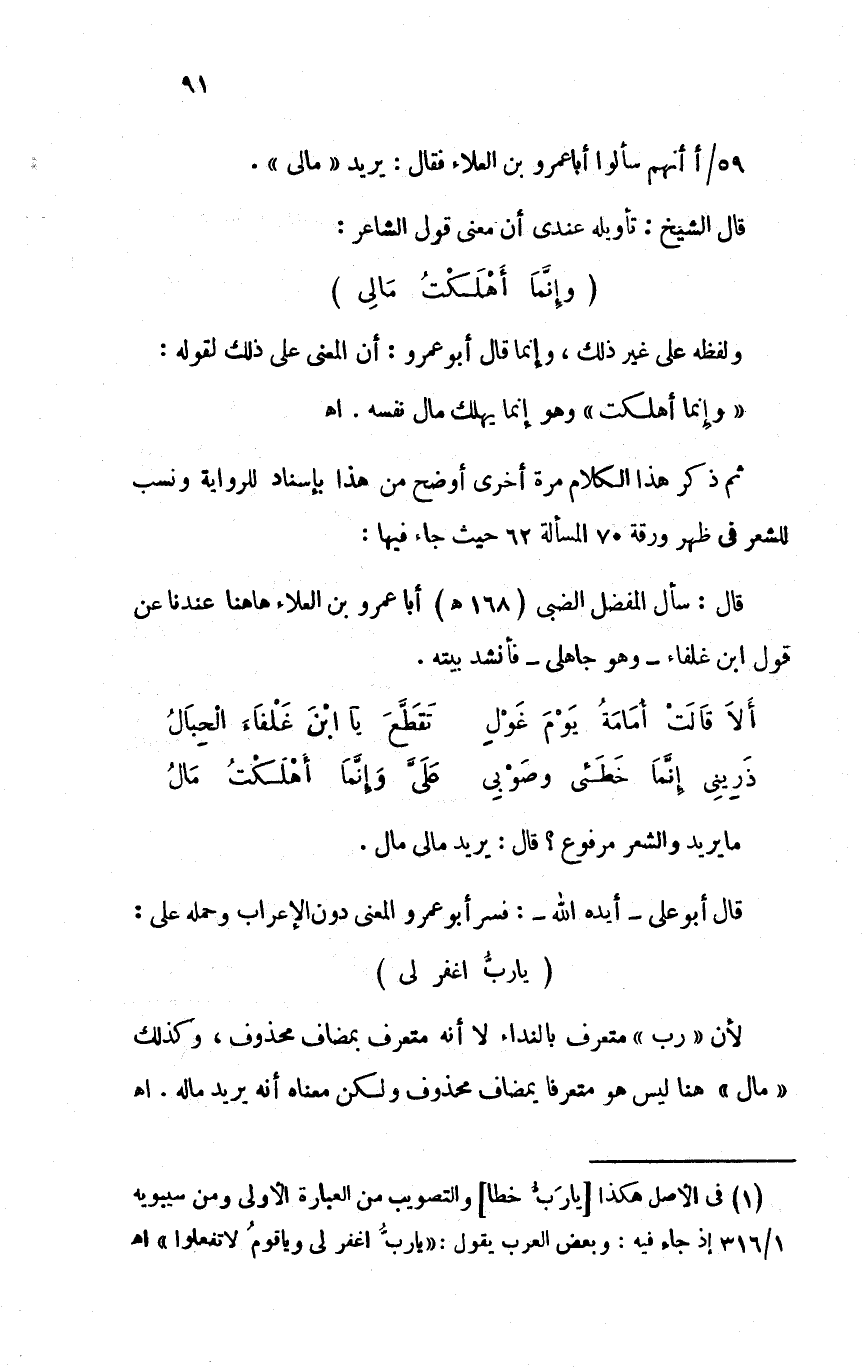 ٩١
٥٩/ أ أنهم سألوا أباعمرو بن العلاء فقال : يريد « مالى » .
قال الشيخ : تأويله عندى أن معنى قول الشاعر :
( وإِنَّمَا أَهْلَكْتُ مَالِى )
ولفظه على غير ذلك ، وإنما قال أبو عمرو : أن المعنى على ذلك لقوله :
« وإنما أهلكت » وهو إنما يهلك مال نفسه . اه
ثم ذكر هذا الكلام مرة أخرى أوضح من هذا بإسناد للرواية ونسب
للشعر فى ظهر ورقة ٧٠ المسألة ٦٢ حيث جاء فيها :
قال : سأل المفضل الضبى ( ١٦٨ ه ) أبا عمرو بن العلاء هاهنا عندنا عن
قول ابن غلفاء ـ وهو جاهلى ـ فأنشد بيته .
أَلاَ قَالَتْ أُمَامَةُ يَوْمَ غَوْلٍ تَقَطَّعَ يَا ابْنَ غَلْفَاءَ الْحِبَالُ
ذَرِينِى إِنَّمَا خَطَئى وصَوْبِى عَلَىَّ وَإِنَّمَا أَهْلَكْتُ مَالُ
مايريد والشعر مرفوع ؟ قال : يريد مالى مال .
قال أبو على ـ أيده الله ـ : فسر أبو عمرو المعنى دون الإعراب وحمله على :
( ياربُّ اغفر لى )
لأن « رب » متعرف بالنداء لا أنه متعرف بمضاف محذوف ، وكذلك
« مال » هنا ليس هو متعرفا بمضاف محذوف ولكن معناه أنه يريد ماله . اه
(١) فى الأصل هكذا [يارَبُ خطا] والتصويب من العبارة الأولى ومن سيبويه
٣١٦/١ إذ جاء فيه : وبعض العرب يقول : «ياربُّ اغفر لى وياقومُ لاتفعلوا » اه